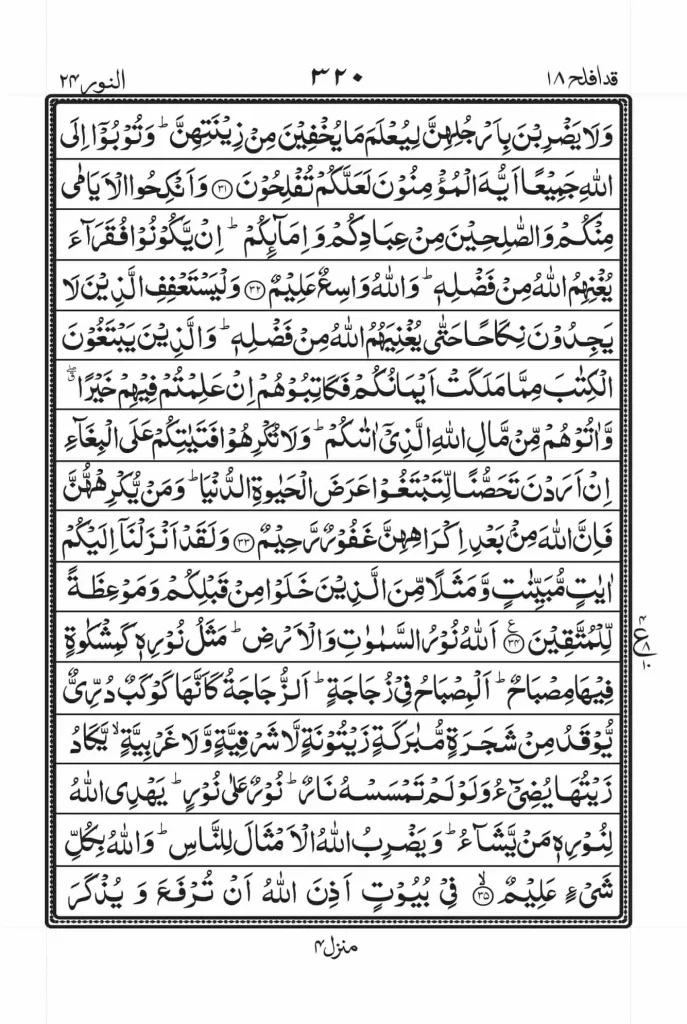 قدافلح ۱۸
۳۲۰
النور ۲۴
وَلَا يَضْرِبْنَ بِاَرْجُلِهِنَّ لِيُعْلَمَ مَا يُخْفِيْنَ مِنْ زِيْنَتِهِنَّ ؕ وَتُوْبُوْۤا اِلَى
اللّٰهِ جَمِيْعًا اَيُّهَ الْمُؤْمِنُوْنَ لَعَلَّكُمْ تُفْلِحُوْنَ ۝۳۱ وَاَنْكِحُوا الْاَيَامٰى
مِنْكُمْ وَالصّٰلِحِيْنَ مِنْ عِبَادِكُمْ وَاِمَآئِكُمْ ؕ اِنْ يَّكُوْنُوْا فُقَرَآءَ
يُغْنِهِمُ اللّٰهُ مِنْ فَضْلِهٖ ؕ وَاللّٰهُ وَاسِعٌ عَلِيْمٌ ۝۳۲ وَلْيَسْتَعْفِفِ الَّذِيْنَ لَا
يَجِدُوْنَ نِكَاحًا حَتّٰى يُغْنِيَهُمُ اللّٰهُ مِنْ فَضْلِهٖ ؕ وَالَّذِيْنَ يَبْتَغُوْنَ
الْكِتٰبَ مِمَّا مَلَكَتْ اَيْمَانُكُمْ فَكَاتِبُوْهُمْ اِنْ عَلِمْتُمْ فِيْهِمْ خَيْرًا ۖۗ
وَّاٰتُوْهُمْ مِّنْ مَّالِ اللّٰهِ الَّذِيْۤ اٰتٰىكُمْ ؕ وَلَا تُكْرِهُوْا فَتَيٰتِكُمْ عَلَى الْبِغَآءِ
اِنْ اَرَدْنَ تَحَصُّنًا لِّتَبْتَغُوْا عَرَضَ الْحَيٰوةِ الدُّنْيَا ؕ وَمَنْ يُّكْرِهْهُّنَّ
فَاِنَّ اللّٰهَ مِنْۢ بَعْدِ اِكْرَاهِهِنَّ غَفُوْرٌ رَّحِيْمٌ ۝۳۳ وَلَقَدْ اَنْزَلْنَاۤ اِلَيْكُمْ
اٰيٰتٍ مُّبَيِّنٰتٍ وَّمَثَلًا مِّنَ الَّذِيْنَ خَلَوْا مِنْ قَبْلِكُمْ وَمَوْعِظَةً
لِّلْمُتَّقِيْنَ ۝۳۴ ع اَللّٰهُ نُوْرُ السَّمٰوٰتِ وَالْاَرْضِ ؕ مَثَلُ نُوْرِهٖ كَمِشْكٰوةٍ
۴ ع ۸ ۱۰
فِيْهَا مِصْبَاحٌ ؕ اَلْمِصْبَاحُ فِيْ زُجَاجَةٍ ؕ اَلزُّجَاجَةُ كَاَنَّهَا كَوْكَبٌ دُرِّيٌّ
يُّوْقَدُ مِنْ شَجَرَةٍ مُّبٰرَكَةٍ زَيْتُوْنَةٍ لَّا شَرْقِيَّةٍ وَّلَا غَرْبِيَّةٍ ۙ يَّكَادُ
زَيْتُهَا يُضِيْٓءُ وَلَوْ لَمْ تَمْسَسْهُ نَارٌ ؕ نُوْرٌ عَلٰى نُوْرٍ ؕ يَهْدِى اللّٰهُ
لِنُوْرِهٖ مَنْ يَّشَآءُ ؕ وَيَضْرِبُ اللّٰهُ الْاَمْثَالَ لِلنَّاسِ ؕ وَاللّٰهُ بِكُلِّ
شَيْءٍ عَلِيْمٌ ۝۳۵ ۙ فِيْ بُيُوْتٍ اَذِنَ اللّٰهُ اَنْ تُرْفَعَ وَ يُذْكَرَ
منزل۴